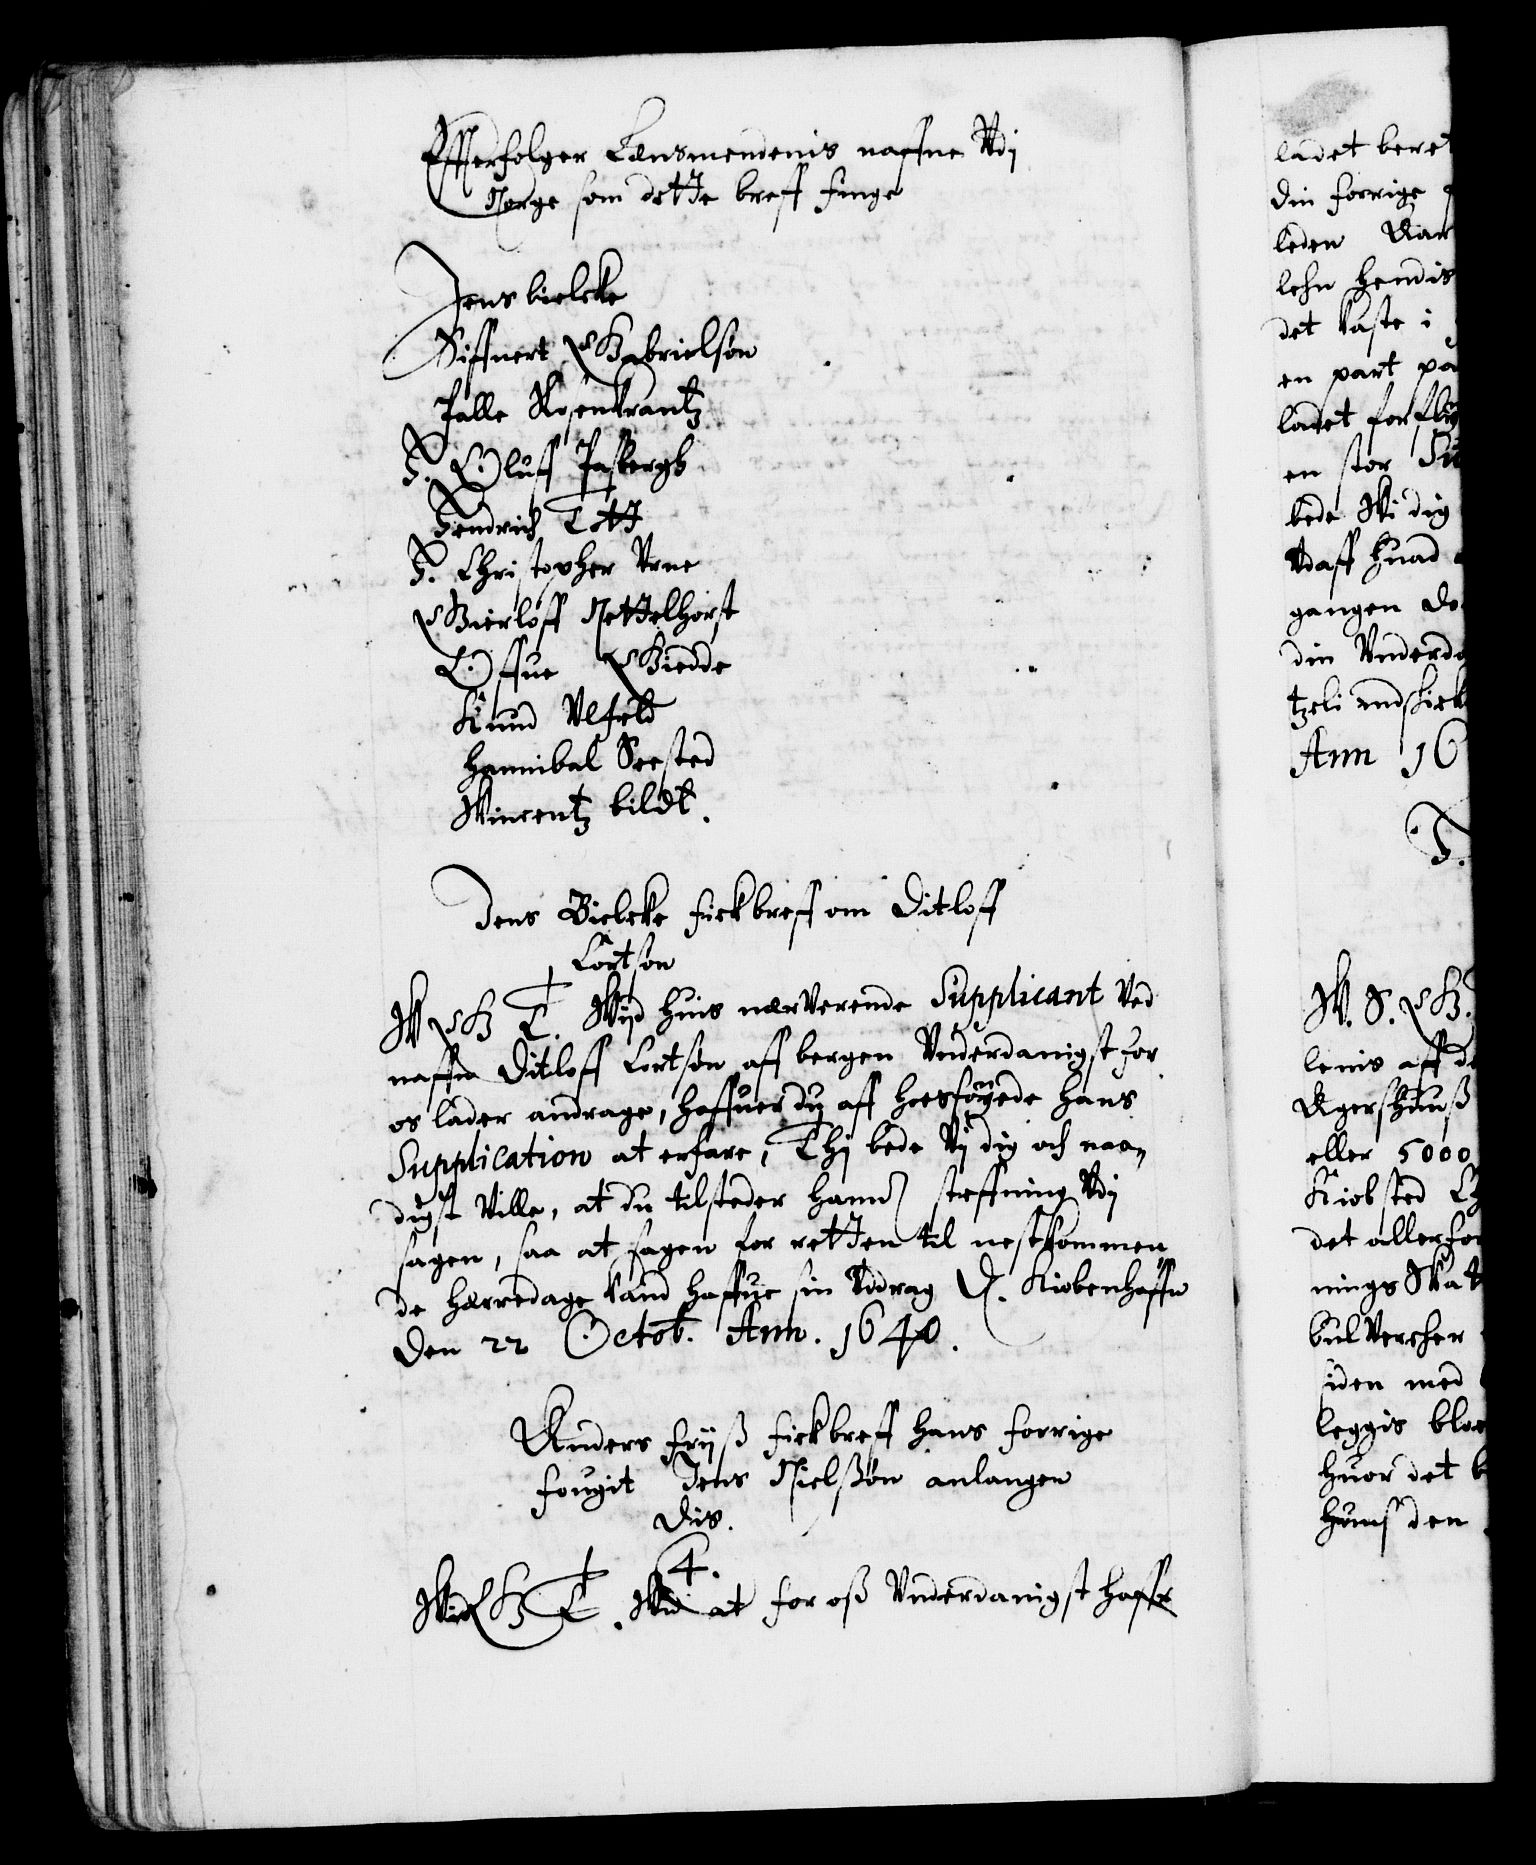 Effterfolger Lensmendenis naffne Vdj
Norge som dette breff finge
Jens bielcke
Siffuert Gabrielsøn
Palle Rosenkrantz
H. Oluff Pasbergh
Hendrich Tott
H. Christopher Vrne
Gierløff Nettelhorst
Offue Giedde
Knud Vlfeld
Hannibal Seested
Wincentz bildt.
Jens Bielcke fick breff om Ditloff
Lortsøn
W G T. Wijd huis nærverende Supplicant Ved
naffn Ditloff Lortsøn aff bergen Vnderdanigst for
os lader andrage, haffuer du aff hoesføyede hans
Supplication at erfare, Thj bede Vj dig och naa,,
digst Ville, at du tilsteder hannd steffning Vdj
sagen, saa at sagen for retten til nestkommen
de herredage kand haffue sin Vddrag D. Kiøbenhaffn
Den 22 Octob. Ann. 1640.
Anders Friiß fick breff hans forrige
fougit Jens Nielßøn anlangen
dis.
4.
G T. Wid at for oß Vnderdanigst haffr
ladet beret
din forrige
leden
lehn hendis
det kaste i
en part pa
ladet
en stor
bede Wi dig
Vdaff huad
gangen
din Vnderda
tzeli
Ann 16
H.
W. S. G.
lenis aff de
Agershuuß
eller 5000
Kiøbsted
det allerfor
nings Skat
bulVercher
siden med
leggis
huor det
den